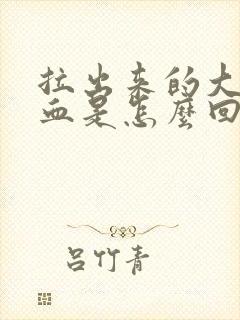 拉出来的大
血是怎麼回
吕竹青